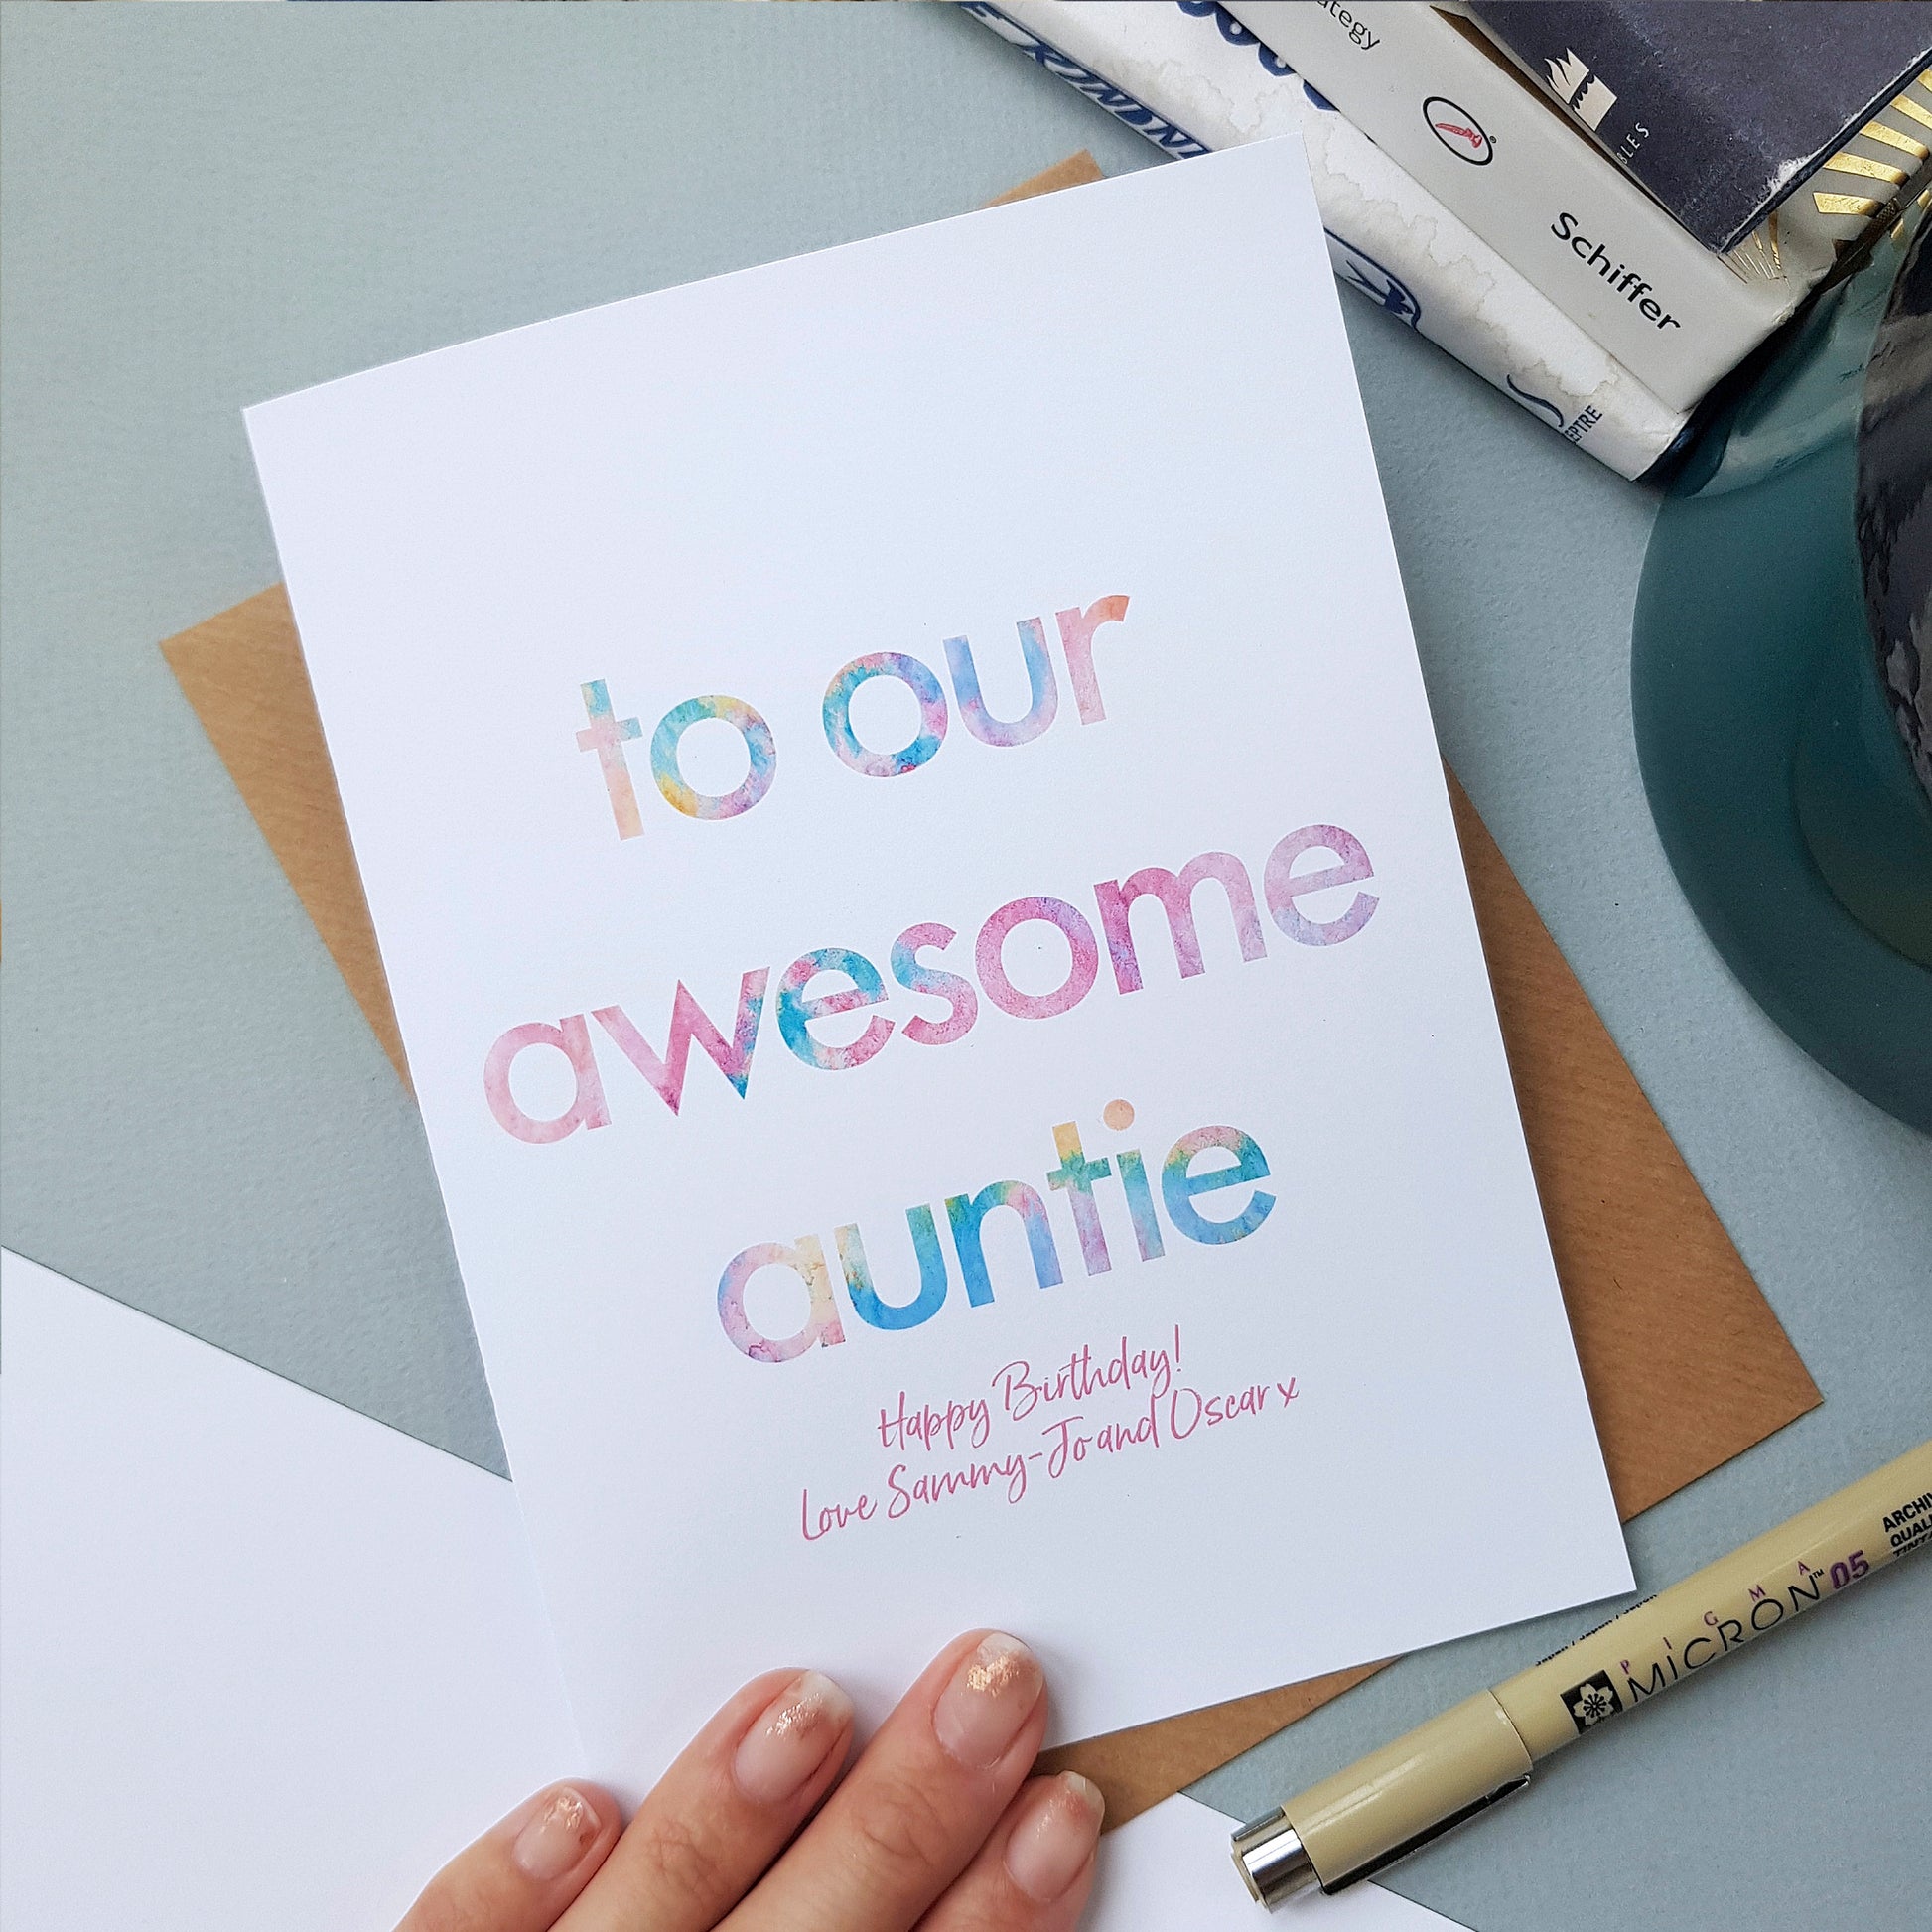 to our
awesome
auntie
Happy Birthday!
Love Sammy-Jo and Oscar x
Schiffer
PIGMA
MICRON™ 05